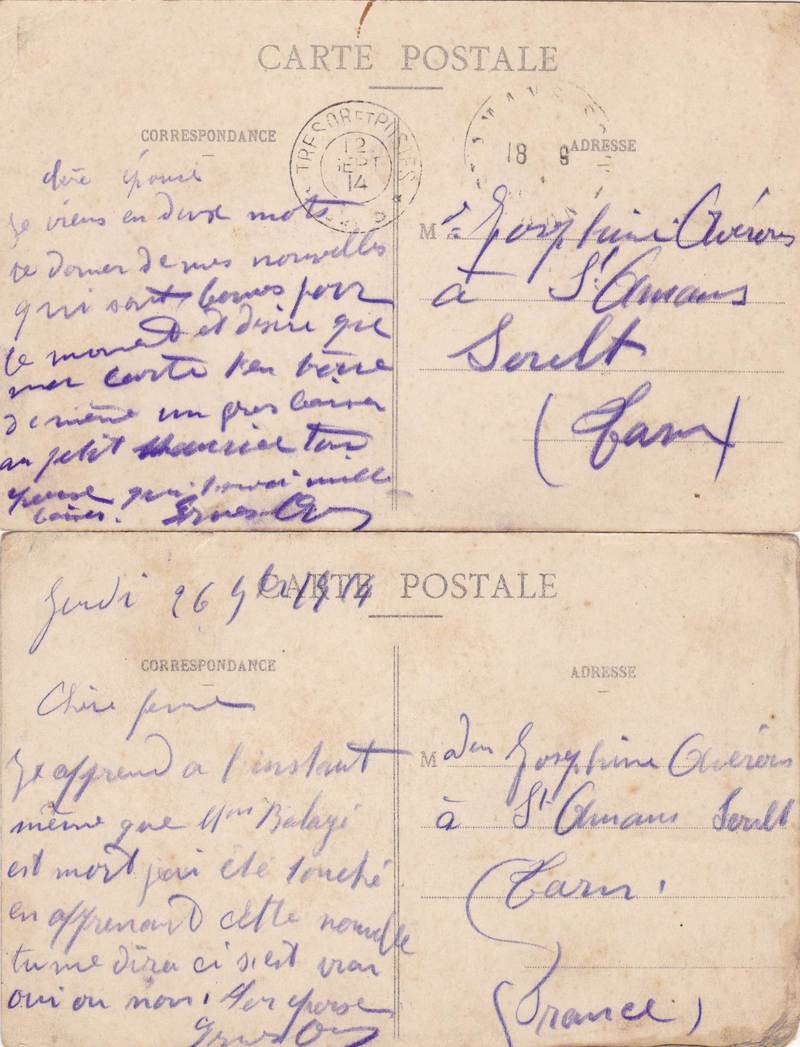 CARTE POSTALE
CORRESPONDANCE
ADRESSE
TRESOR ET POSTES
12
SEPT
14
18 9
chère épouse
Je viens en deux mots
te donner de mes nouvelles
qui sont bonnes pour
le moment et desire que
mer carte t'en
de même un gros baiser
au petit Maurice ton
qui t'envoi mille
baiser. Ernest
Mde Josephine Avérous
à St Amans
Soult
(Tarn)
CARTE POSTALE
Jeudi 26 9bre 1914
CORRESPONDANCE
ADRESSE
Chère femme
Je apprend a l'instant
même que Mme Balayé
est mort jai été touché
en apprenant cette nouvelle
tu me dira ci s'est vrai
oui ou non. Ton
Ernest
Madem Josephine Avérous
à St Amans Soult
Tarn.
(France)